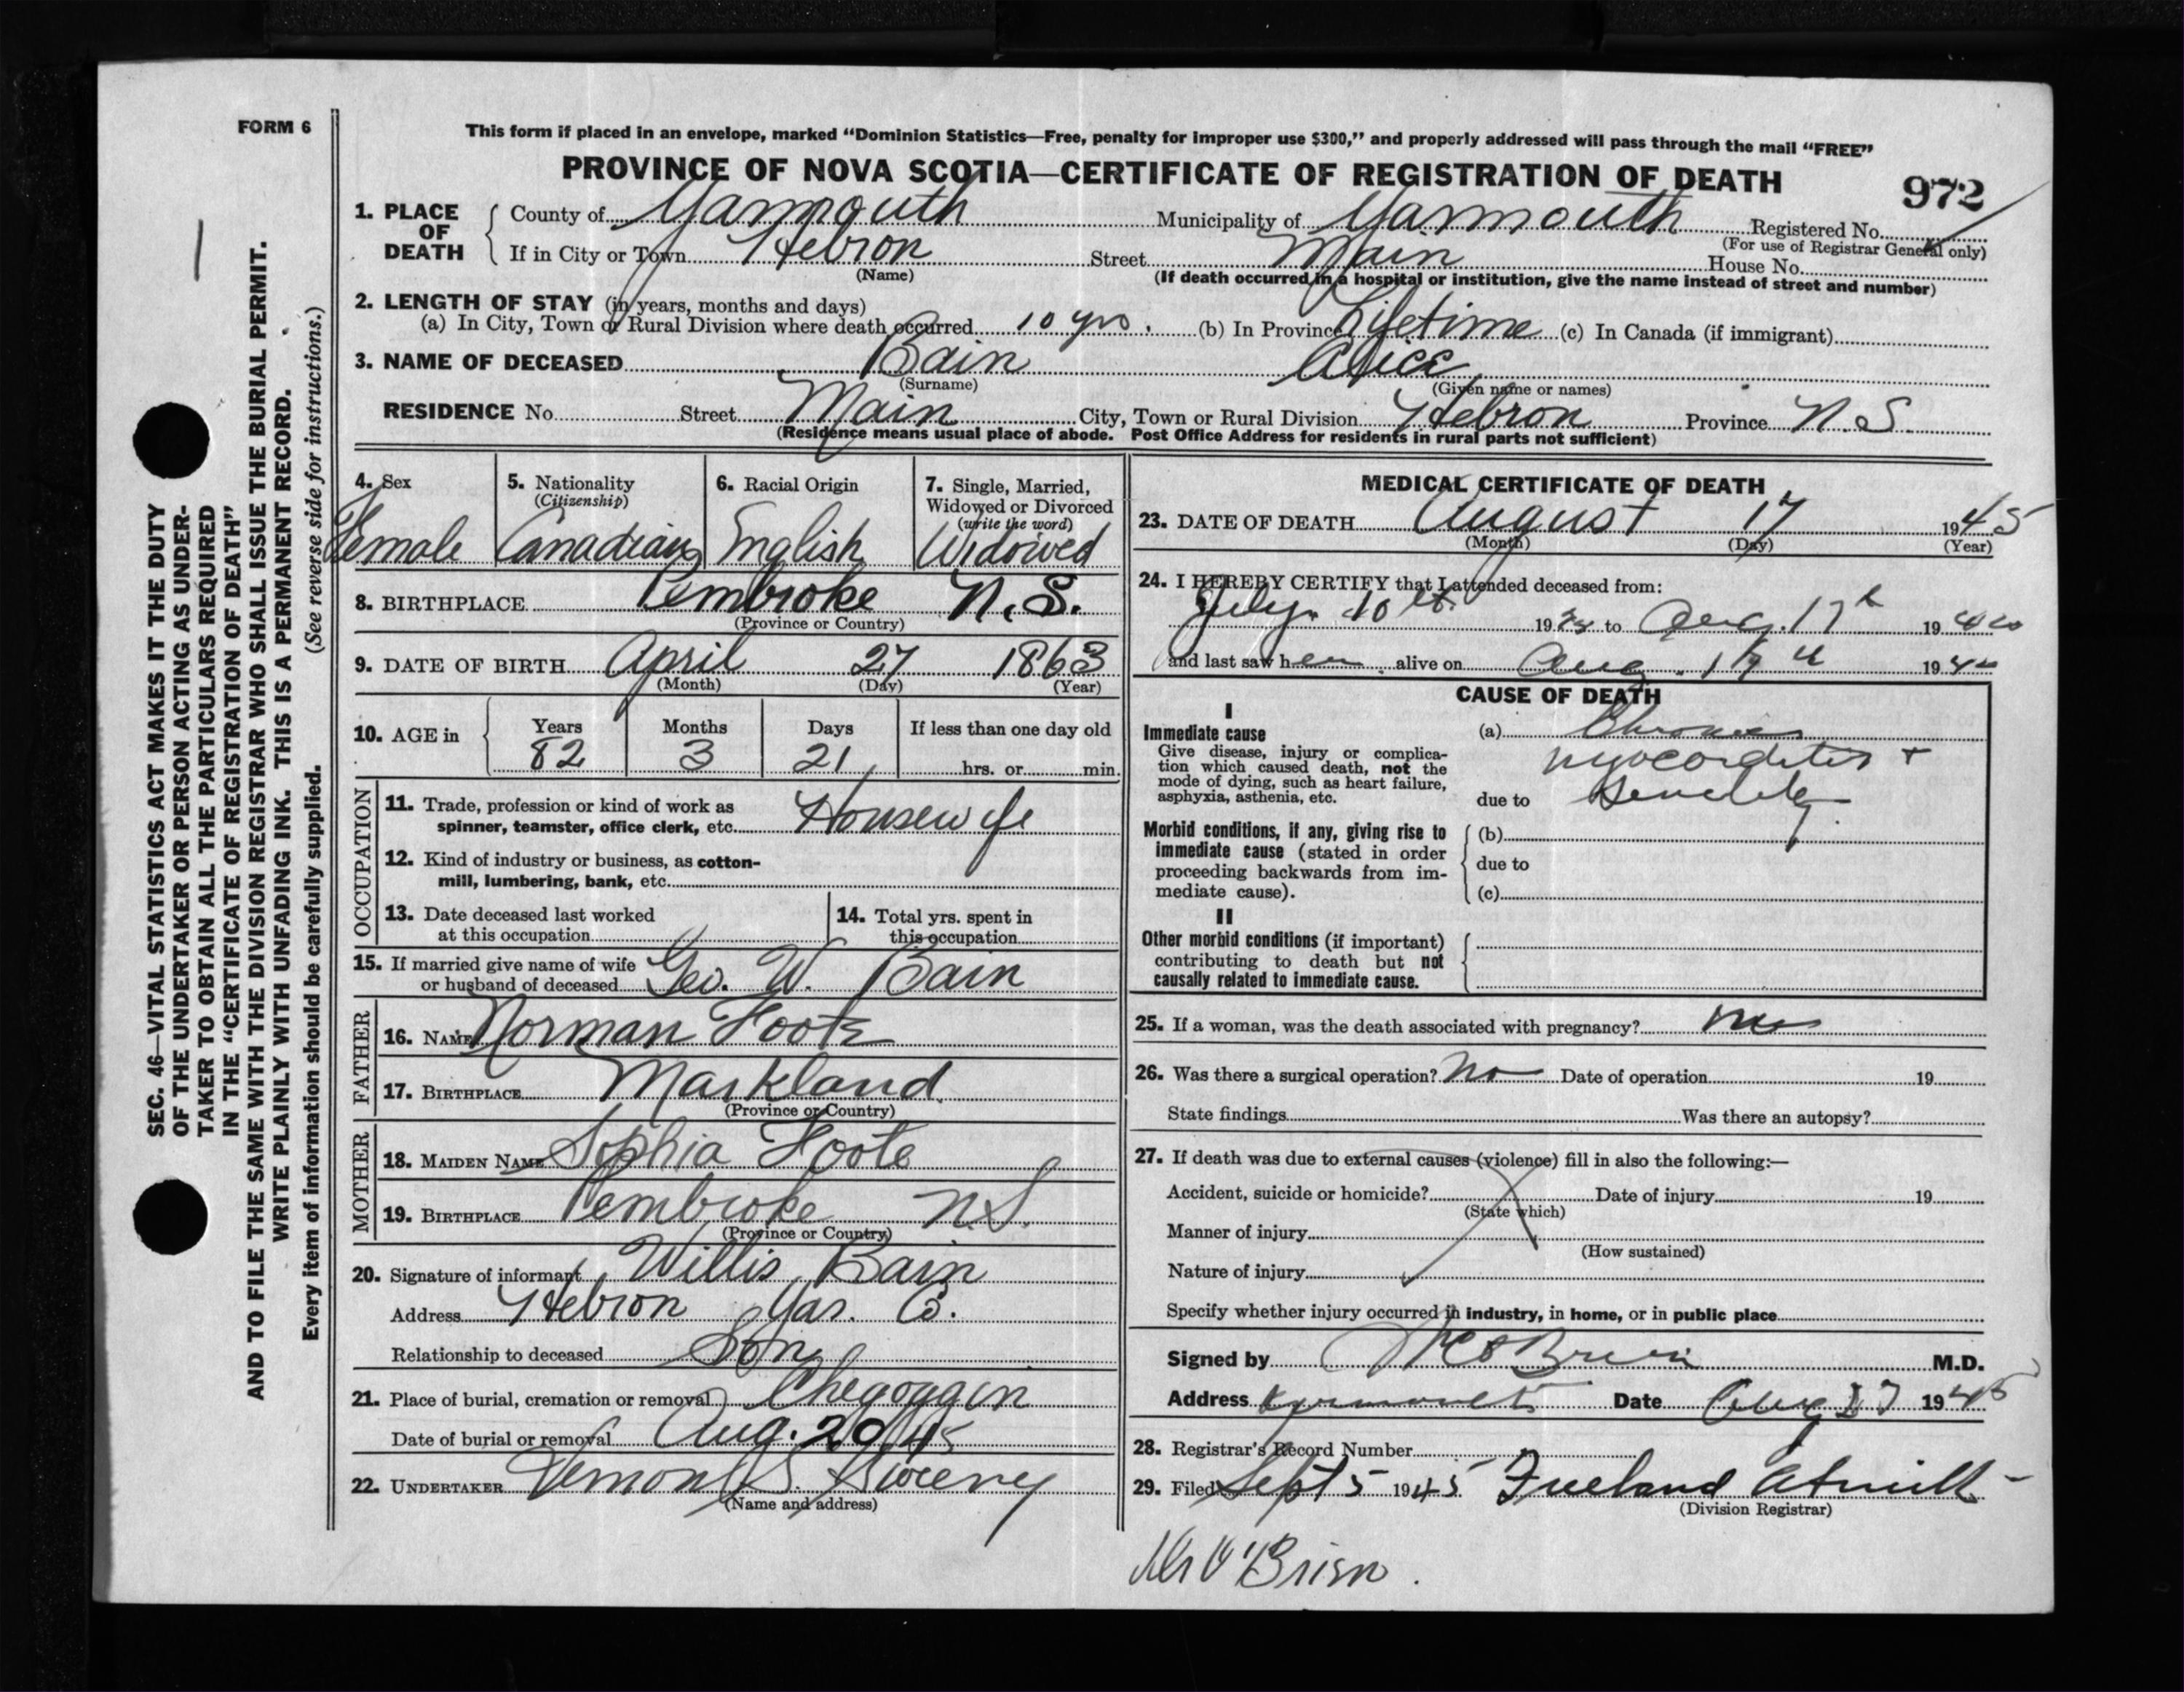 FORM 6
This form if placed in an envelope, marked “Dominion Statistics—Free, penalty for improper use $300,” and properly addressed will pass through the mail “FREE”
PROVINCE OF NOVA SCOTIA—CERTIFICATE OF REGISTRATION OF DEATH
972
1. PLACE OF DEATH { County of Yarmouth Municipality of Yarmouth Registered No.
(For use of Registrar General only)
If in City or Town Hebron Street Main House No.
(Name) (If death occurred in a hospital or institution, give the name instead of street and number)
2. LENGTH OF STAY (in years, months and days)
(a) In City, Town or Rural Division where death occurred 10 yrs. (b) In Province Lifetime (c) In Canada (if immigrant)
3. NAME OF DECEASED Bain Alice
(Surname) (Given name or names)
RESIDENCE No. Street Main City, Town or Rural Division Hebron Province N.S.
(Residence means usual place of abode. Post Office Address for residents in rural parts not sufficient)
4. Sex Female
5. Nationality (Citizenship) Canadian
6. Racial Origin English
7. Single, Married, Widowed or Divorced (write the word) Widowed
8. BIRTHPLACE Pembroke N.S.
(Province or Country)
9. DATE OF BIRTH April 27 1863
(Month) (Day) (Year)
10. AGE in { Years Months Days If less than one day old
82 3 21 hrs. or min.
OCCUPATION
11. Trade, profession or kind of work as
spinner, teamster, office clerk, etc. Housewife
12. Kind of industry or business, as cotton-
mill, lumbering, bank, etc.
13. Date deceased last worked
at this occupation
14. Total yrs. spent in
this occupation
15. If married give name of wife
or husband of deceased Geo. W. Bain
FATHER
16. NAME Norman Foote
17. BIRTHPLACE Markland
(Province or Country)
MOTHER
18. MAIDEN NAME Sophia Foote
19. BIRTHPLACE Pembroke N.S.
(Province or Country)
20. Signature of informant Willis Bain
Address Hebron Yar. Co.
Relationship to deceased Son
21. Place of burial, cremation or removal Chegoggin
Date of burial or removal Aug. 20/45
22. UNDERTAKER Vernon S. Sweeny
(Name and address)
MEDICAL CERTIFICATE OF DEATH
23. DATE OF DEATH August 17 1945
(Month) (Day) (Year)
24. I HEREBY CERTIFY that I attended deceased from:
July 10th 19 to Aug. 17th 19
and last saw her alive on Aug. 17th 19
CAUSE OF DEATH
I
Immediate cause
Give disease, injury or complica-
tion which caused death, not the
mode of dying, such as heart failure,
asphyxia, asthenia, etc.
(a) Chronic
myocarditis +
due to Senility
Morbid conditions, if any, giving rise to
immediate cause (stated in order
proceeding backwards from im-
mediate cause).
(b)
due to
(c)
II
Other morbid conditions (if important)
contributing to death but not
causally related to immediate cause.
25. If a woman, was the death associated with pregnancy? no
26. Was there a surgical operation? No Date of operation 19
State findings Was there an autopsy?
27. If death was due to external causes (violence) fill in also the following:—
Accident, suicide or homicide? Date of injury 19
(State which)
Manner of injury
(How sustained)
Nature of injury
Specify whether injury occurred in industry, in home, or in public place
Signed by O'Brien M.D.
Address Yarmouth Date Aug 17 1945
28. Registrar's Record Number
29. Filed Sept 5 1945 Freeland
(Division Registrar)
O'Brien.
SEC. 46—VITAL STATISTICS ACT MAKES IT THE DUTY
OF THE UNDERTAKER OR PERSON ACTING AS UNDER-
TAKER TO OBTAIN ALL THE PARTICULARS REQUIRED
IN THE “CERTIFICATE OF REGISTRATION OF DEATH”
AND TO FILE THE SAME WITH THE DIVISION REGISTRAR WHO SHALL ISSUE THE BURIAL PERMIT.
WRITE PLAINLY WITH UNFADING INK. THIS IS A PERMANENT RECORD.
Every item of information should be carefully supplied. (See reverse side for instructions.)